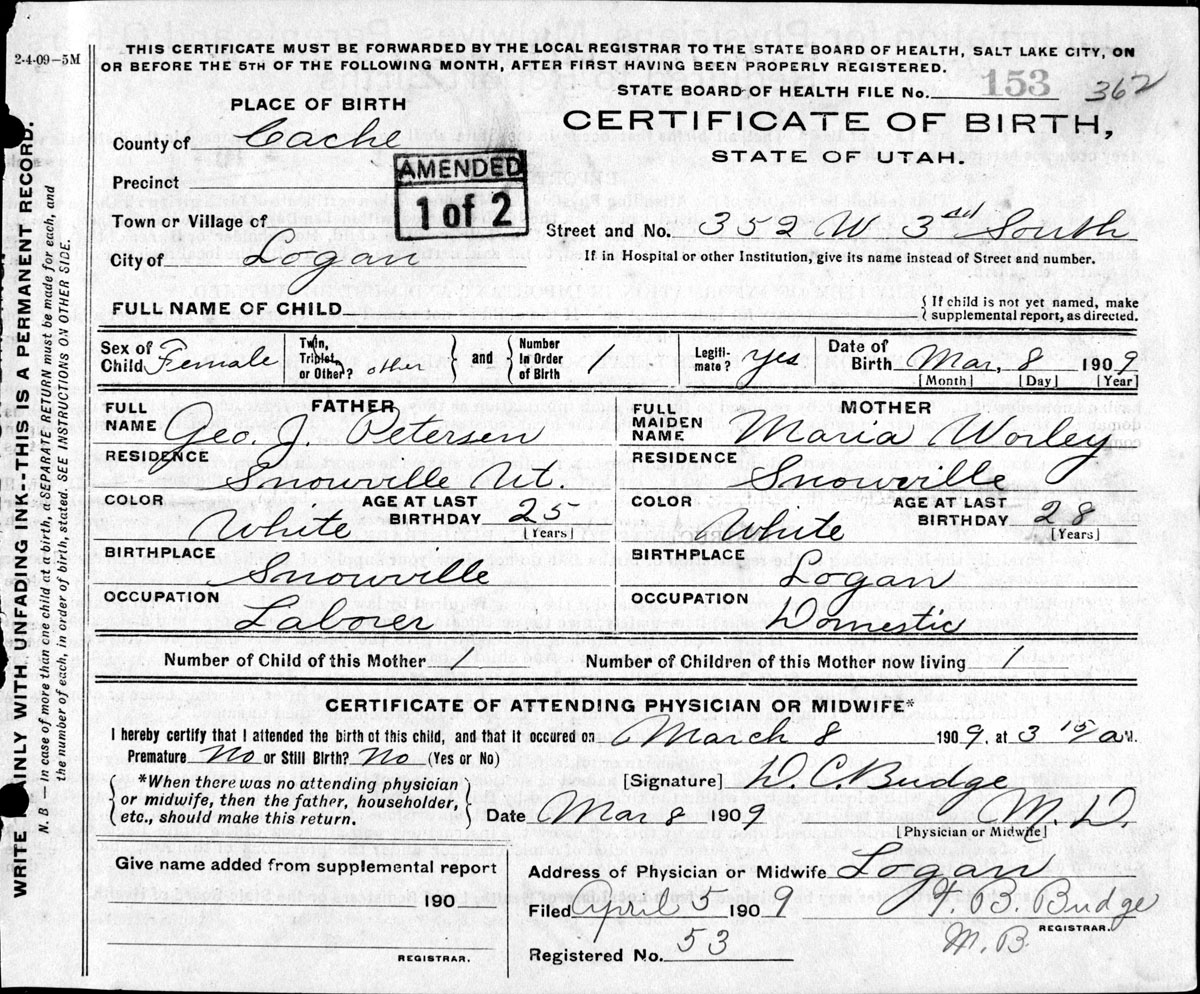 2-4-09-5M
THIS CERTIFICATE MUST BE FORWARDED BY THE LOCAL REGISTRAR TO THE STATE BOARD OF HEALTH, SALT LAKE CITY, ON
OR BEFORE THE 5TH OF THE FOLLOWING MONTH, AFTER FIRST HAVING BEEN PROPERLY REGISTERED.
STATE BOARD OF HEALTH FILE No. 153 362
PLACE OF BIRTH
CERTIFICATE OF BIRTH,
STATE OF UTAH.
County of Cache
Precinct
AMENDED
1 of 2
Town or Village of
Street and No. 352 W 3rd South
City of Logan
If in Hospital or other Institution, give its name instead of Street and number.
FULL NAME OF CHILD
{If child is not yet named, make
supplemental report, as directed.
Sex of Child Female
Twin, Triplet, or Other? other } and { Number In Order of Birth 1
Legiti-mate? yes
Date of Birth Mar, 8 1909
[Month] [Day] [Year]
FULL NAME FATHER Geo. J. Petersen
FULL MAIDEN NAME MOTHER Maria Worley
RESIDENCE Snowville Ut.
RESIDENCE Snowville
COLOR White AGE AT LAST BIRTHDAY 25 [Years]
COLOR White AGE AT LAST BIRTHDAY 28 [Years]
BIRTHPLACE Snowville
BIRTHPLACE Logan
OCCUPATION Laborer
OCCUPATION Domestic
Number of Child of this Mother 1 Number of Children of this Mother now living 1
CERTIFICATE OF ATTENDING PHYSICIAN OR MIDWIFE*
I hereby certify that I attended the birth of this child, and that it occured on March 8 1909, at 3 15/a M.
Premature No or Still Birth? No (Yes or No)
*When there was no attending physician
or midwife, then the father, householder,
etc., should make this return.
[Signature] D. C. Budge
M. D.
Date Mar 8 1909
[Physician or Midwife]
Give name added from supplemental report
190
REGISTRAR.
Address of Physician or Midwife Logan
Filed April 5 1909 T. B. Budge
M. B. REGISTRAR.
Registered No. 53
WRITE PLAINLY WITH UNFADING INK--THIS IS A PERMANENT RECORD.
N. B.—In case of more than one child at a birth, a SEPARATE RETURN must be made for each, and
the number of each, in order of birth, stated. SEE INSTRUCTIONS ON OTHER SIDE.